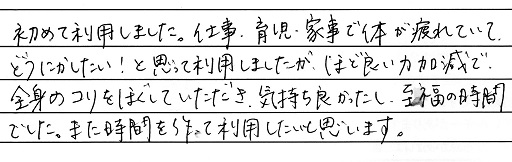 初めて利用しました。仕事・育児・家事で体が疲れていて、
どうにかしたい！と思って利用しましたが、ほど良い力加減で
全身のコリをほぐしていただき、気持ち良かったし、至福の時間
でした。また時間を作って利用したいと思います。